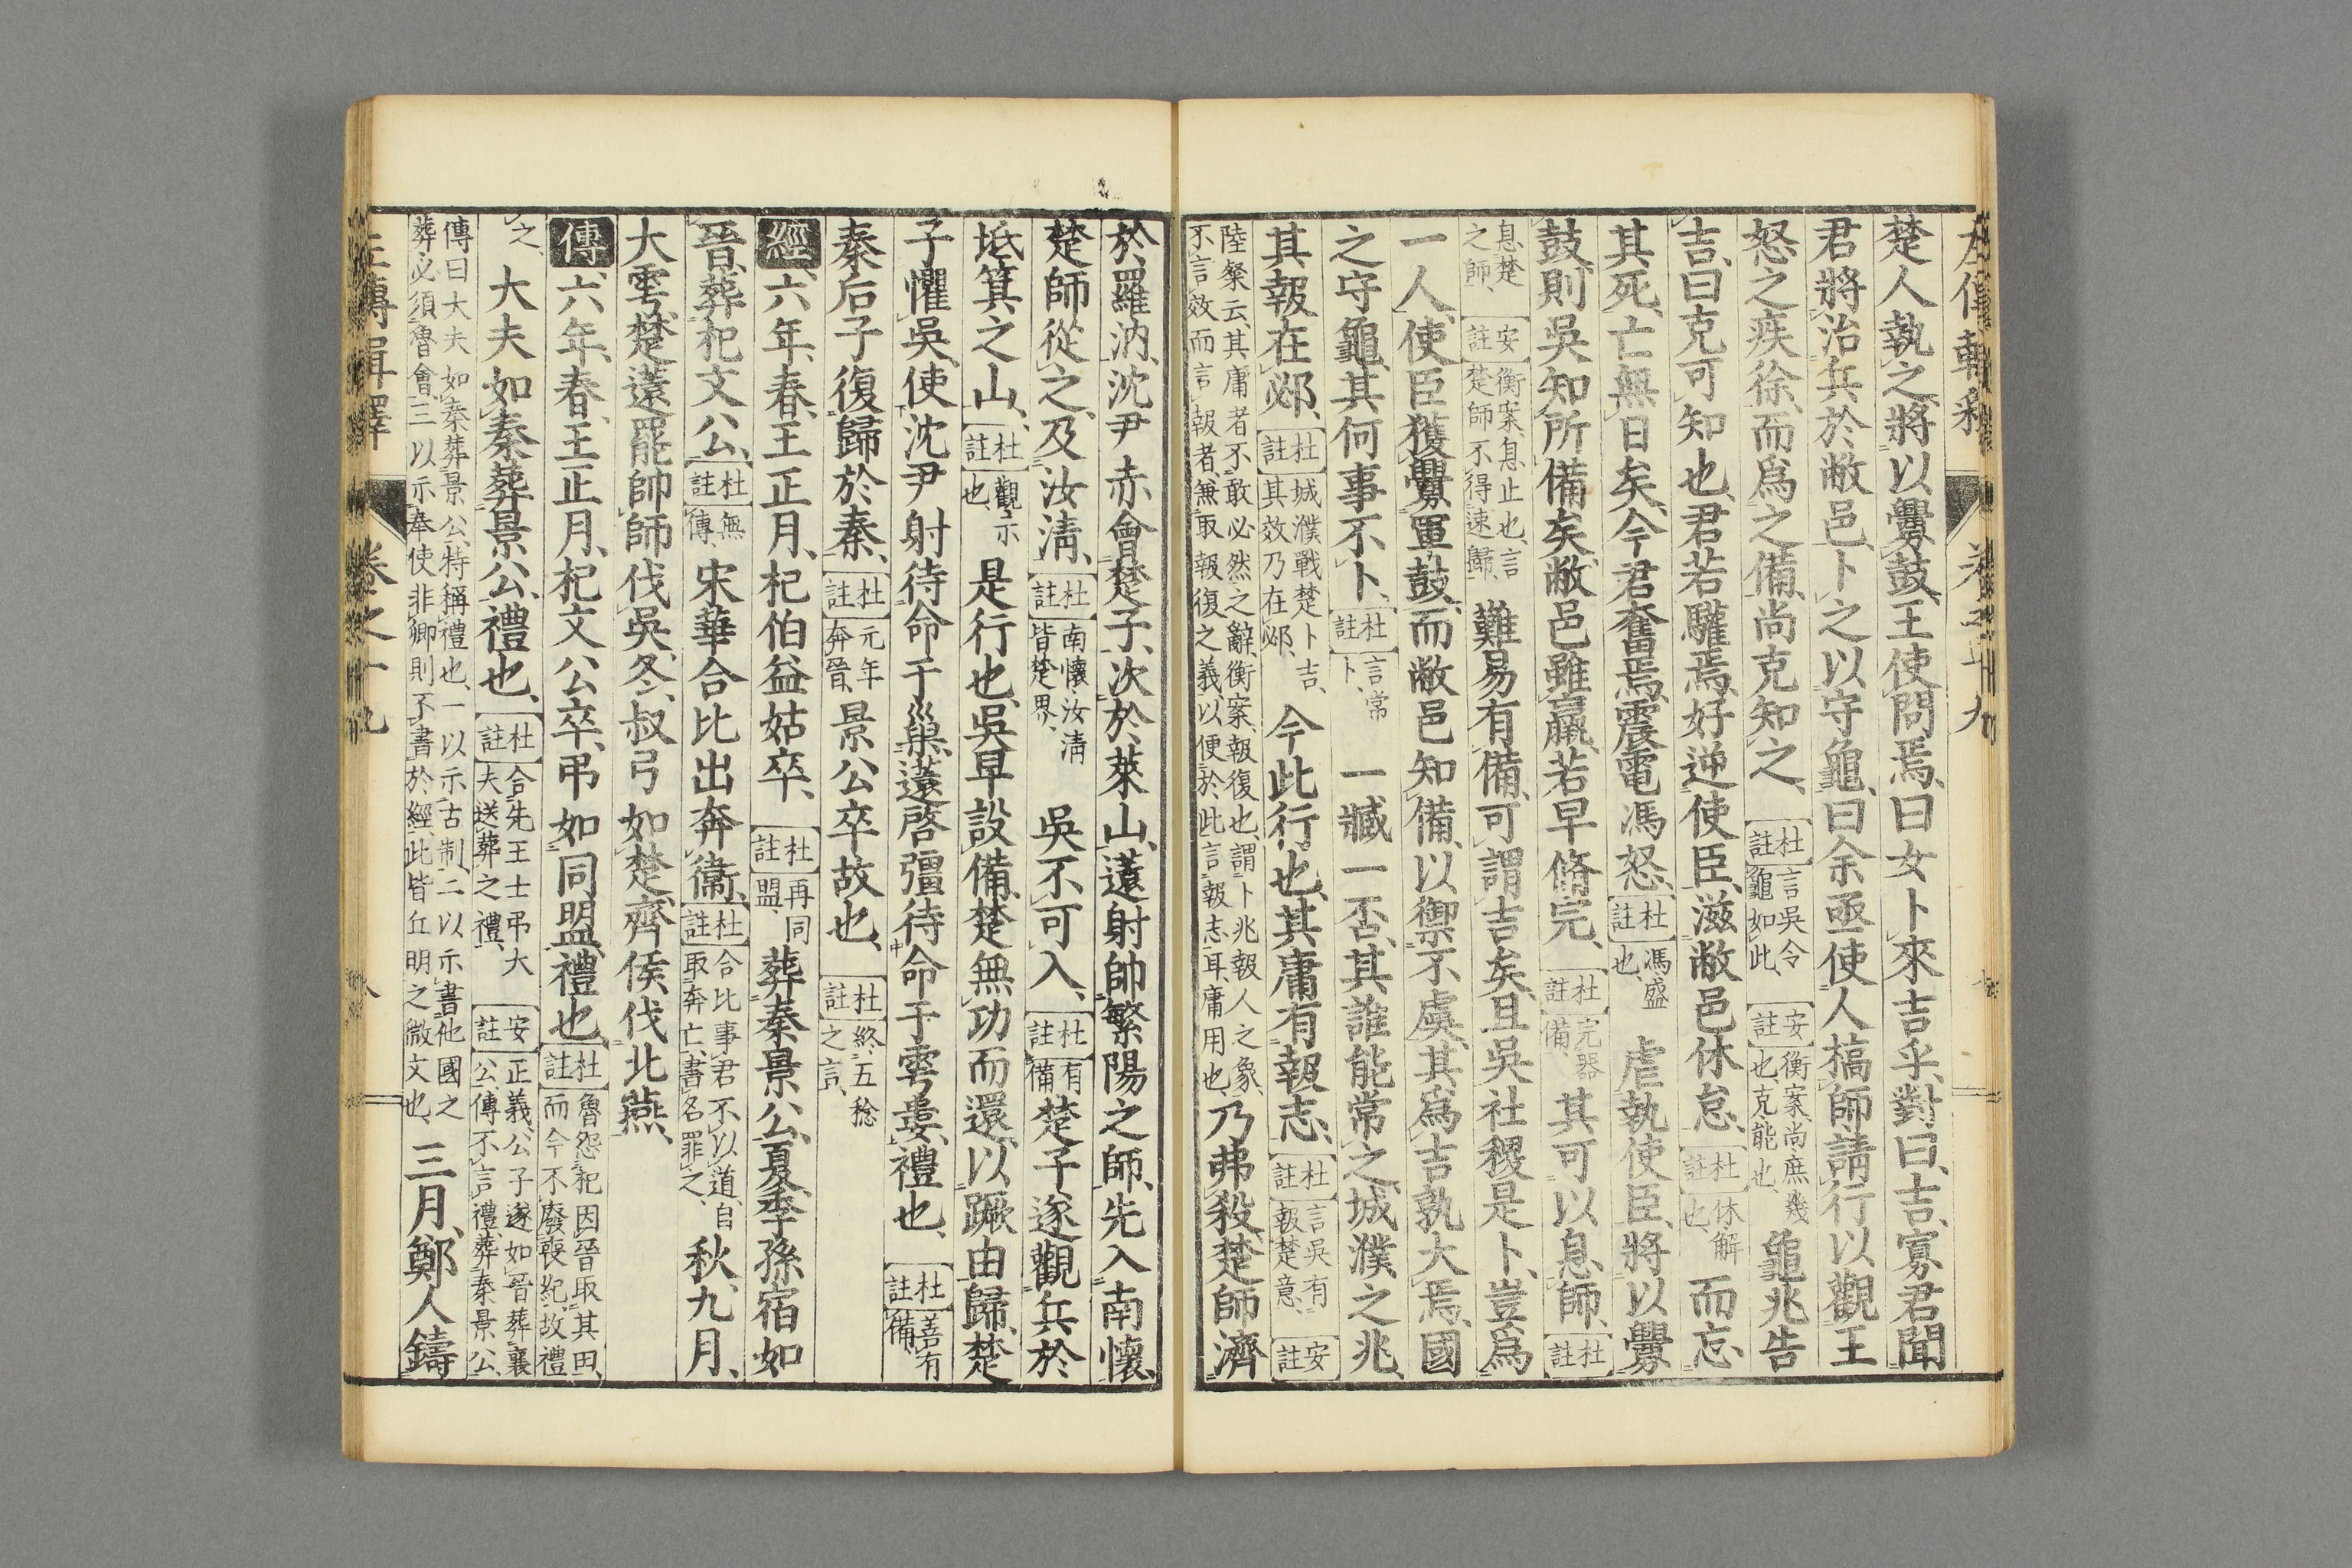 左傳輯釋 卷之十九
楚人執之、將以釁鼓、王使問焉、曰女卜來吉乎、對曰、吉、寡君聞
君將治兵於敝邑、卜之以守龜、曰余亟使人犒師、請行以觀王
怒之疾徐、而爲之備、尚克知之、杜註言吳令龜如此、安註衡案、尚庶幾也、克能也、龜兆告
吉、曰克可知也、君若驩焉、好逆使臣、滋敝邑休怠、杜註休解也、而忘
其死、亡無日矣、今君奮焉、震電馮怒、杜註馮盛也、虐執使臣、將以釁
鼓、則吳知所備矣、敝邑雖羸、若早脩完、杜註完器備、其可以息師、杜註
息楚之師、安註衡案、息止也、言楚師不得速歸、難易有備、可謂吉矣、且吳社稷是卜、豈爲
一人、使臣獲釁軍鼓、而敝邑知備、以禦不虞、其爲吉孰大焉、國
之守龜、其何事不卜、杜註言常卜、一臧一否、其誰能常之、城濮之兆、
其報在邲、杜註城濮戰楚卜吉、其效乃在邲、今此行也、其庸有報志、杜註言吳有報楚意、安註
陸粲云、其庸者不敢必然之辭、衡案、報復也、謂卜兆報人之象、不言效而言報者、兼取報復之義、以便於此言報志耳、庸用也、乃弗殺、楚師濟
於羅汭、沈尹赤會楚子、次於萊山、薳射帥繁陽之師、先入南懷、
楚師從之、及汝清、杜註南懷汝清皆楚界、吳不可入、杜註有備、楚子遂觀兵於
坻箕之山、杜註觀示也、是行也、吳早設備、楚無功而還、以蹶由歸、楚
子懼吳、使沈尹射待命于巢、薳啓彊待命于雩婁、禮也、杜註善有備、
秦后子復歸於秦、杜註元年奔晉、景公卒故也、杜註終五稔之言、
經六年、春、王正月、杞伯益姑卒、杜註再同盟、葬秦景公、夏、季孫宿如
晉、葬杞文公、杜註無傳、宋華合比出奔衞、杜註合比事君不以道、自取奔亡、書名罪之、秋、九月、
大雩、楚薳罷帥師伐吳、冬、叔弓如楚、齊侯伐北燕、
傳六年、春、王正月、杞文公卒、弔如同盟、禮也、杜註魯怨杞因晉取其田、而今不廢喪紀、故禮
之、大夫如秦葬景公、禮也、杜註合先王士弔大夫送葬之禮、安註正義、公子遂如晉葬襄公、傳不言禮、葬秦景公、
傳曰大夫如秦葬景公、特稱禮也、一以示古制、二以示書他國之葬必須魯會、三以示奉使非卿則不書於經、此皆丘明之微文也、三月、鄭人鑄
左傳輯釋 卷之十九 八